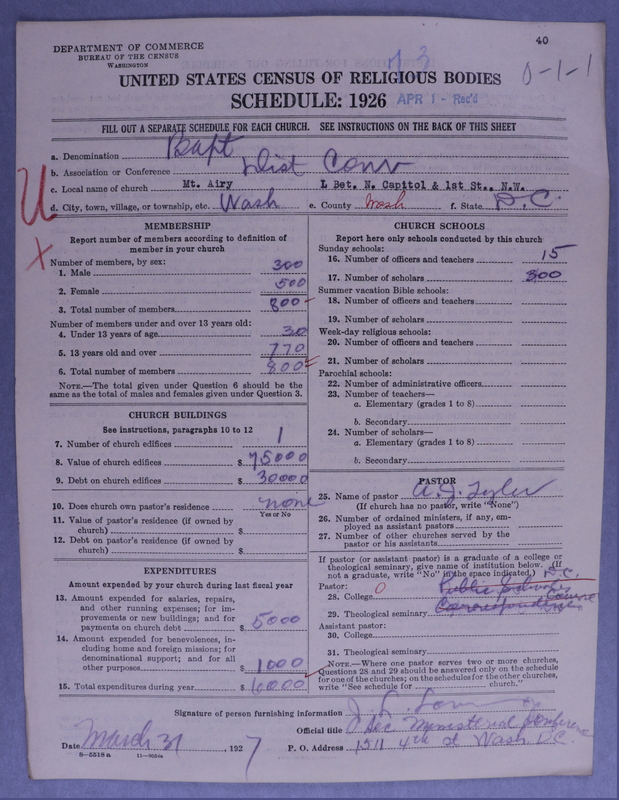 40
DEPARTMENT OF COMMERCE
BUREAU OF THE CENSUS
WASHINGTON
73
0-1-1
UNITED STATES CENSUS OF RELIGIOUS BODIES
SCHEDULE: 1926 APR 1 - Rec'd
FILL OUT A SEPARATE SCHEDULE FOR EACH CHURCH. SEE INSTRUCTIONS ON THE BACK OF THIS SHEET
a. Denomination Bapt
b. Association or Conference Dist Conv
c. Local name of church Mt. Airy L Bet. N. Capitol & 1st St., N.W.
d. City, town, village, or township, etc. Wash e. County Wash f. State D.C.
U
X
MEMBERSHIP
Report number of members according to definition of
member in your church
Number of members, by sex:
1. Male 300
2. Female 500
3. Total number of members 800
Number of members under and over 13 years old:
4. Under 13 years of age 30
5. 13 years old and over 770
6. Total number of members 800
NOTE.—The total given under Question 6 should be the
same as the total of males and females given under Question 3.
CHURCH BUILDINGS
See instructions, paragraphs 10 to 12
7. Number of church edifices 1
8. Value of church edifices $ 75000
9. Debt on church edifices $ 30000
10. Does church own pastor's residence none
Yes or No
11. Value of pastor's residence (if owned by
church) $
12. Debt on pastor's residence (if owned by
church) $
EXPENDITURES
Amount expended by your church during last fiscal year
13. Amount expended for salaries, repairs,
and other running expenses; for im-
provements or new buildings; and for
payments on church debt $ 5000
14. Amount expended for benevolences, in-
cluding home and foreign missions; for
denominational support; and for all
other purposes $ 1000
15. Total expenditures during year $ 6000
CHURCH SCHOOLS
Report here only schools conducted by this church
Sunday schools:
16. Number of officers and teachers 15
17. Number of scholars 300
Summer vacation Bible schools:
18. Number of officers and teachers
19. Number of scholars
Week-day religious schools:
20. Number of officers and teachers
21. Number of scholars
Parochial schools:
22. Number of administrative officers
23. Number of teachers—
a. Elementary (grades 1 to 8)
b. Secondary
24. Number of scholars—
a. Elementary (grades 1 to 8)
b. Secondary
PASTOR
25. Name of pastor A. J. Tyler
(If church has no pastor, write "None")
26. Number of ordained ministers, if any, em-
ployed as assistant pastors
27. Number of other churches served by the
pastor or his assistants
If pastor (or assistant pastor) is a graduate of a college or
theological seminary, give name of institution below. (If
not a graduate, write "No" in the space indicated) D.C.
Pastor: 0 Public Schools
28. College Course
29. Theological seminary Correspondence
Assistant pastor:
30. College
31. Theological seminary
NOTE.—Where one pastor serves two or more churches,
Questions 28 and 29 should be answered only on the schedule
for one of the churches; on the schedules for the other churches,
write "See schedule for church."
Signature of person furnishing information J. L.
Official title Sec. Ministerial Conference
Date March 31 1927 P. O. Address 1511 4th st Wash D.C.
8-5518a